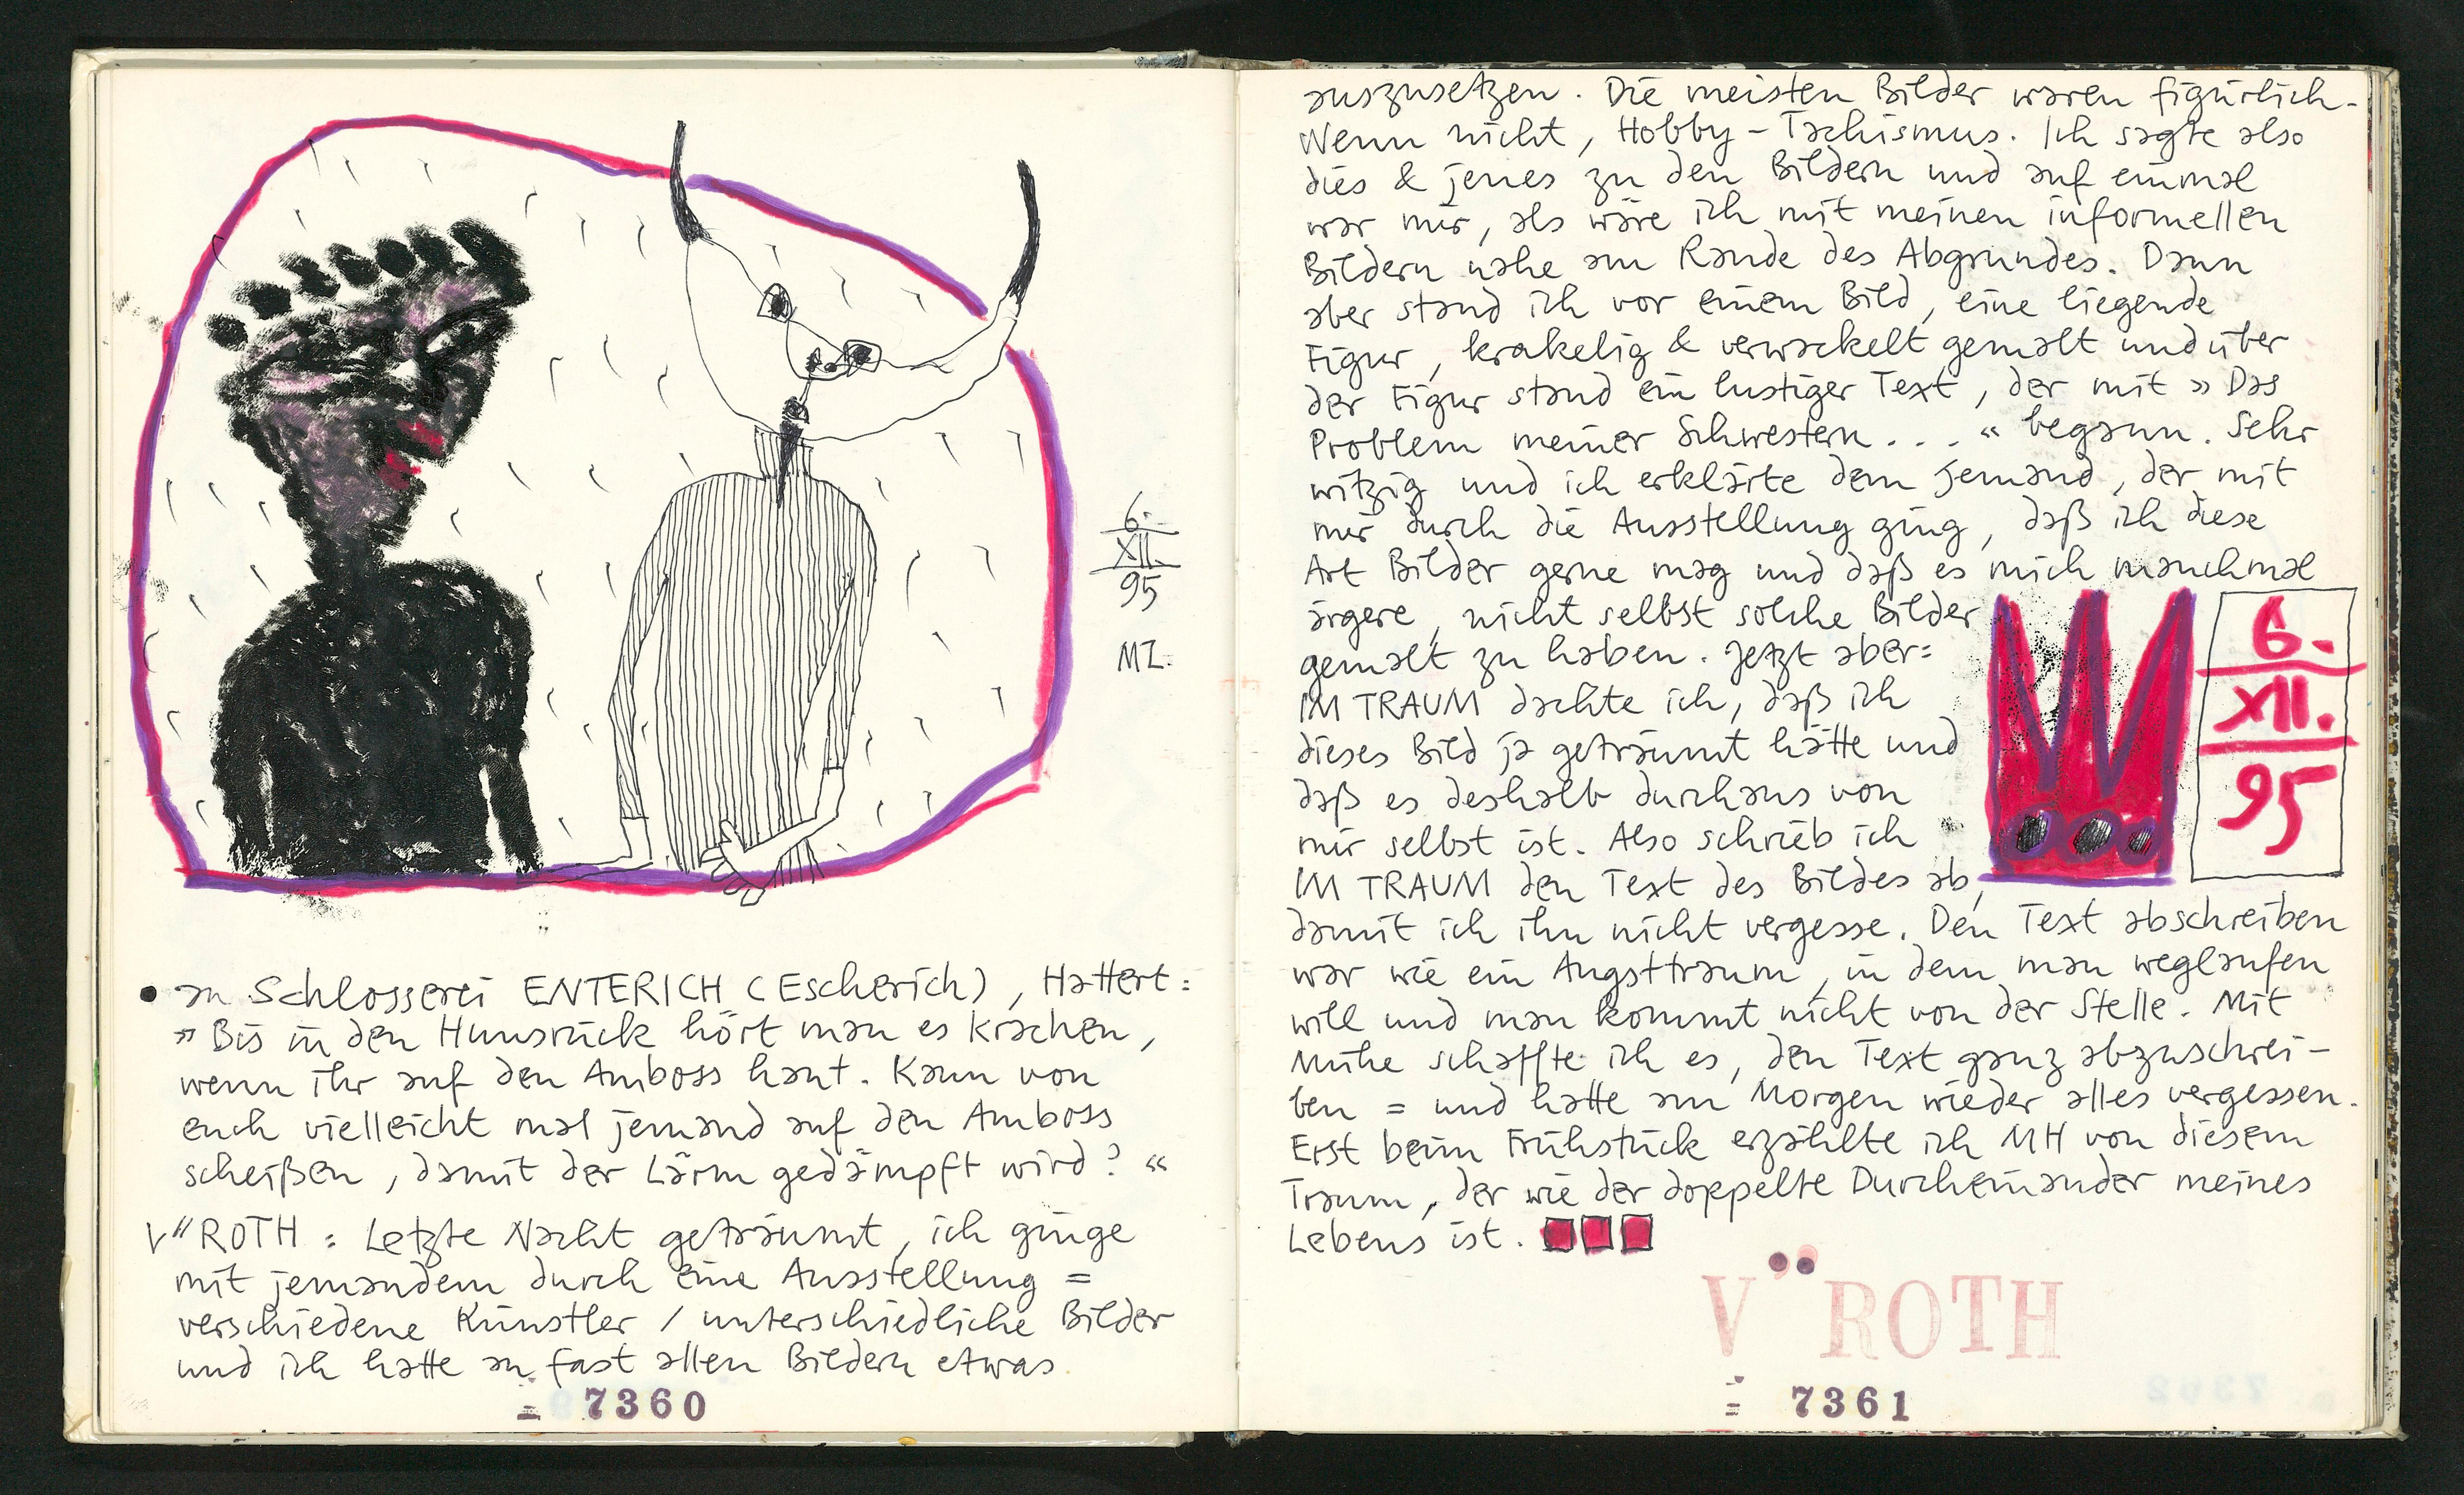 6.
XII.
95
MZ.
• an Schlosserei ENTERICH (Escherich), Hattert:
» Bis in den Hunsrück hört man es krachen,
wenn ihr auf den Amboss haut. Kann von
euch vielleicht mal jemand auf den Amboss
scheißen, damit der Lärm gedämpft wird? «
V"ROTH: Letzte Nacht geträumt, ich ginge
mit jemandem durch eine Ausstellung =
verschiedene Künstler / unterschiedliche Bilder
und ich hatte an fast allen Bildern etwas
= 7360
auszusetzen. Die meisten Bilder waren figürlich.
Wenn nicht, Hobby-Tachismus. Ich sagte also
dies & jenes zu den Bildern und auf einmal
war mir, als wäre ich mit meinen informellen
Bildern nahe am Rande des Abgrundes. Dann
aber stand ich vor einem Bild, eine liegende
Figur, krakelig & verwackelt gemalt und über
der Figur stand ein lustiger Text, der mit » Das
Problem meiner Schwestern . . . « begann. Sehr
witzig und ich erklärte dem Jemand, der mit
mir durch die Ausstellung ging, daß ich diese
Art Bilder gerne mag und daß es mich manchmal
ärgere, nicht selbst solche Bilder
gemalt zu haben. Jetzt aber =
IM TRAUM dachte ich, daß ich
dieses Bild ja geträumt hätte und
daß es deshalb durchaus von
mir selbst ist. Also schrieb ich
IM TRAUM den Text des Bildes ab,
damit ich ihn nicht vergesse. Den Text abschreiben
war wie ein Angsttraum, in dem man weglaufen
will und man kommt nicht von der Stelle. Mit
Mühe schaffte ich es, den Text ganz abzuschrei-
ben = und hatte am Morgen wieder alles vergessen.
Erst beim Frühstück erzählte ich MH von diesem
Traum, der wie der doppelte Durcheinander meines
Lebens ist.
6.
XII.
95
V"ROTH
= 7361